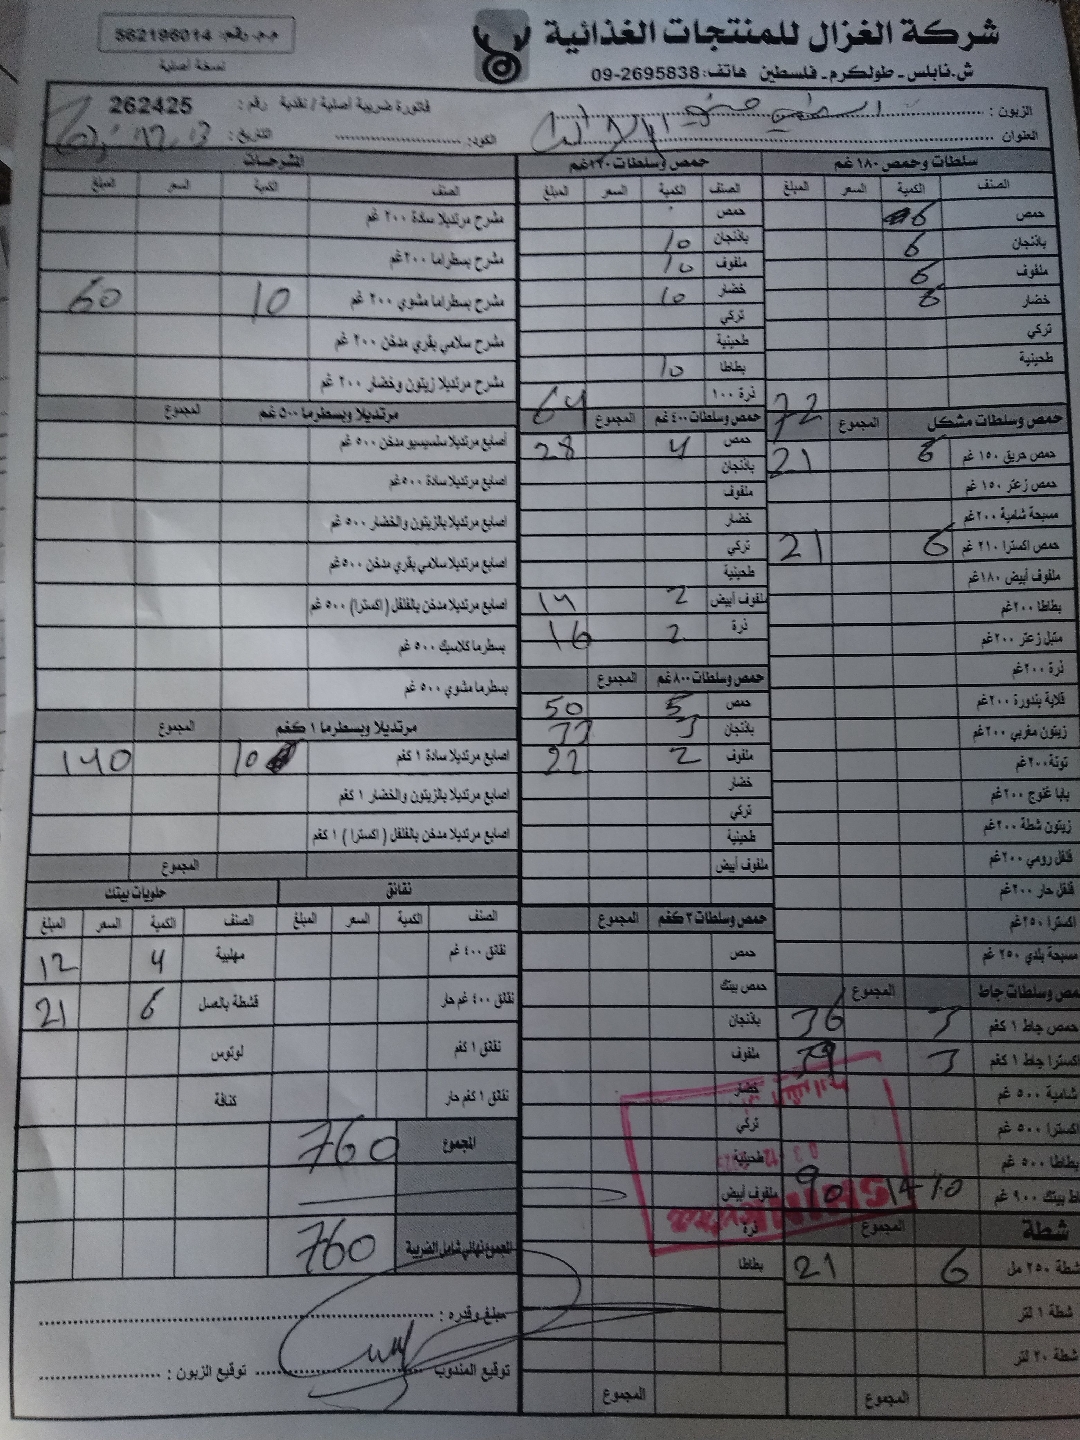 شركة الغزال للمنتجات الغذائية
ش.نابلس - طولكرم - فلسطين هاتف: 09-2695838
م.م. رقم: 562196014
نسخة أصلية
الزبون :
فاتورة ضريبية أصلية / نقدية رقم : 262425
العنوان
الكود:
التاريخ :
سلطات وحمص ١٨٠ غم
الصنف الكمية السعر المبلغ
حمص 6
باذنجان 6
ملفوف 6
خضار 6
تركي
طحينية
72
حمص وسلطات مشكل المجموع
حمص حريق ١٥٠ غم 6 21
حمص زعتر ١٥٠ غم
مسبحة شامية ٢٠٠غم
حمص اكسترا ٢١٠ غم 6 21
ملفوف أبيض ١٨٠غم
بطاطا ٢٠٠غم
متبل زعتر ٢٠٠غم
ذرة ٢٠٠غم
قلاية بندورة ٢٠٠غم
زيتون مغربي ٢٠٠غم
تونة٢٠٠غم
بابا غنوج ٢٠٠غم
زيتون شطة ٢٠٠غم
فلفل رومي ٢٠٠غم
فلفل حار ٢٠٠غم
اكسترا ٢٥٠غم
مسبحة بلدي ٢٥٠ غم
مص وسلطات جاط المجموع
حمص جاط ١ كغم 3 36
اكسترا جاط ١ كغم 3 39
شامية ٥٠٠ غم
اكسترا ٥٠٠ غم
بطاطا ٥٠٠ غم
اط بيتك ٩٠٠ غم 10 90
شطة المجموع
شطة ٢٥٠ مل 6 21
شطة ١ لتر
شطة ٢٠ لتر
المجموع
حمص وسلطات ٢٢٠غم
الصنف الكمية السعر المبلغ
حمص
باذنجان 10
ملفوف 10
خضار 10
تركي
طحينية
بطاطا 10
ذرة ١٠٠ 64
حمص وسلطات ٤٠٠ غم المجموع
حمص 4 28
باذنجان
ملفوف
خضار
تركي
طحينية
ملفوف أبيض 2 14
ذرة 2 16
حمص وسلطات ٨٠٠ غم المجموع
حمص 5 50
باذنجان 3 33
ملفوف 2 22
خضار
تركي
طحينية
ملفوف أبيض
حمص وسلطات ٢ كغم المجموع
حمص
حمص بيتك
باذنجان
ملفوف
خضار
تركي
طحينية
ملفوف أبيض
ذرة
بطاطا
المجموع
المشرحات
الصنف الكمية السعر المبلغ
مشرح مرتديلا سادة ٢٠٠ غم
مشرح بسطراما ٢٠٠غم
مشرح بسطراما مشوي ٢٠٠ غم 10 60
مشرح سلامي بقري مدخن ٢٠٠ غم
مشرح مرتديلا زيتون وخضار ٢٠٠ غم
مرتديلا وبسطرما ٥٠٠ غم المجموع
أصابع مرتديلا سلميسيو مدخن ٥٠٠ غم
اصابع مرتديلا سادة ٥٠٠غم
اصابع مرتديلا بالزيتون والخضار ٥٠٠ غم
اصابع مرتديلا سلامي بقري مدخن ٥٠٠غم
اصابع مرتديلا مدخن بالفلفل ( اكسترا) ٥٠٠ غم
بسطرما كلاسيك ٥٠٠ غم
بسطرما مشوي ٥٠٠ غم
مرتديلا وبسطرما ١ كغم المجموع
اصابع مرتديلا سادة ١ كغم 10 140
اصابع مرتديلا بالزيتون والخضار ١ كغم
اصابع مرتديلا مدخن بالفلفل ( اكسترا ) ١ كغم
المجموع
نقانق حلويات بيتك
الصنف الكمية السعر المبلغ الصنف الكمية السعر المبلغ
نقانق ٤٠٠ غم مهلبية 4 12
نقانق ٤٠٠ غم حار قشطة بالعسل 6 21
نقانق ١ كغم لوتوس
نقانق ١ كغم حار كنافة
المجموع 760
المجموع نهائي شامل الضريبة 760
مبلغ وقدره :
توقيع المندوب توقيع الزبون :